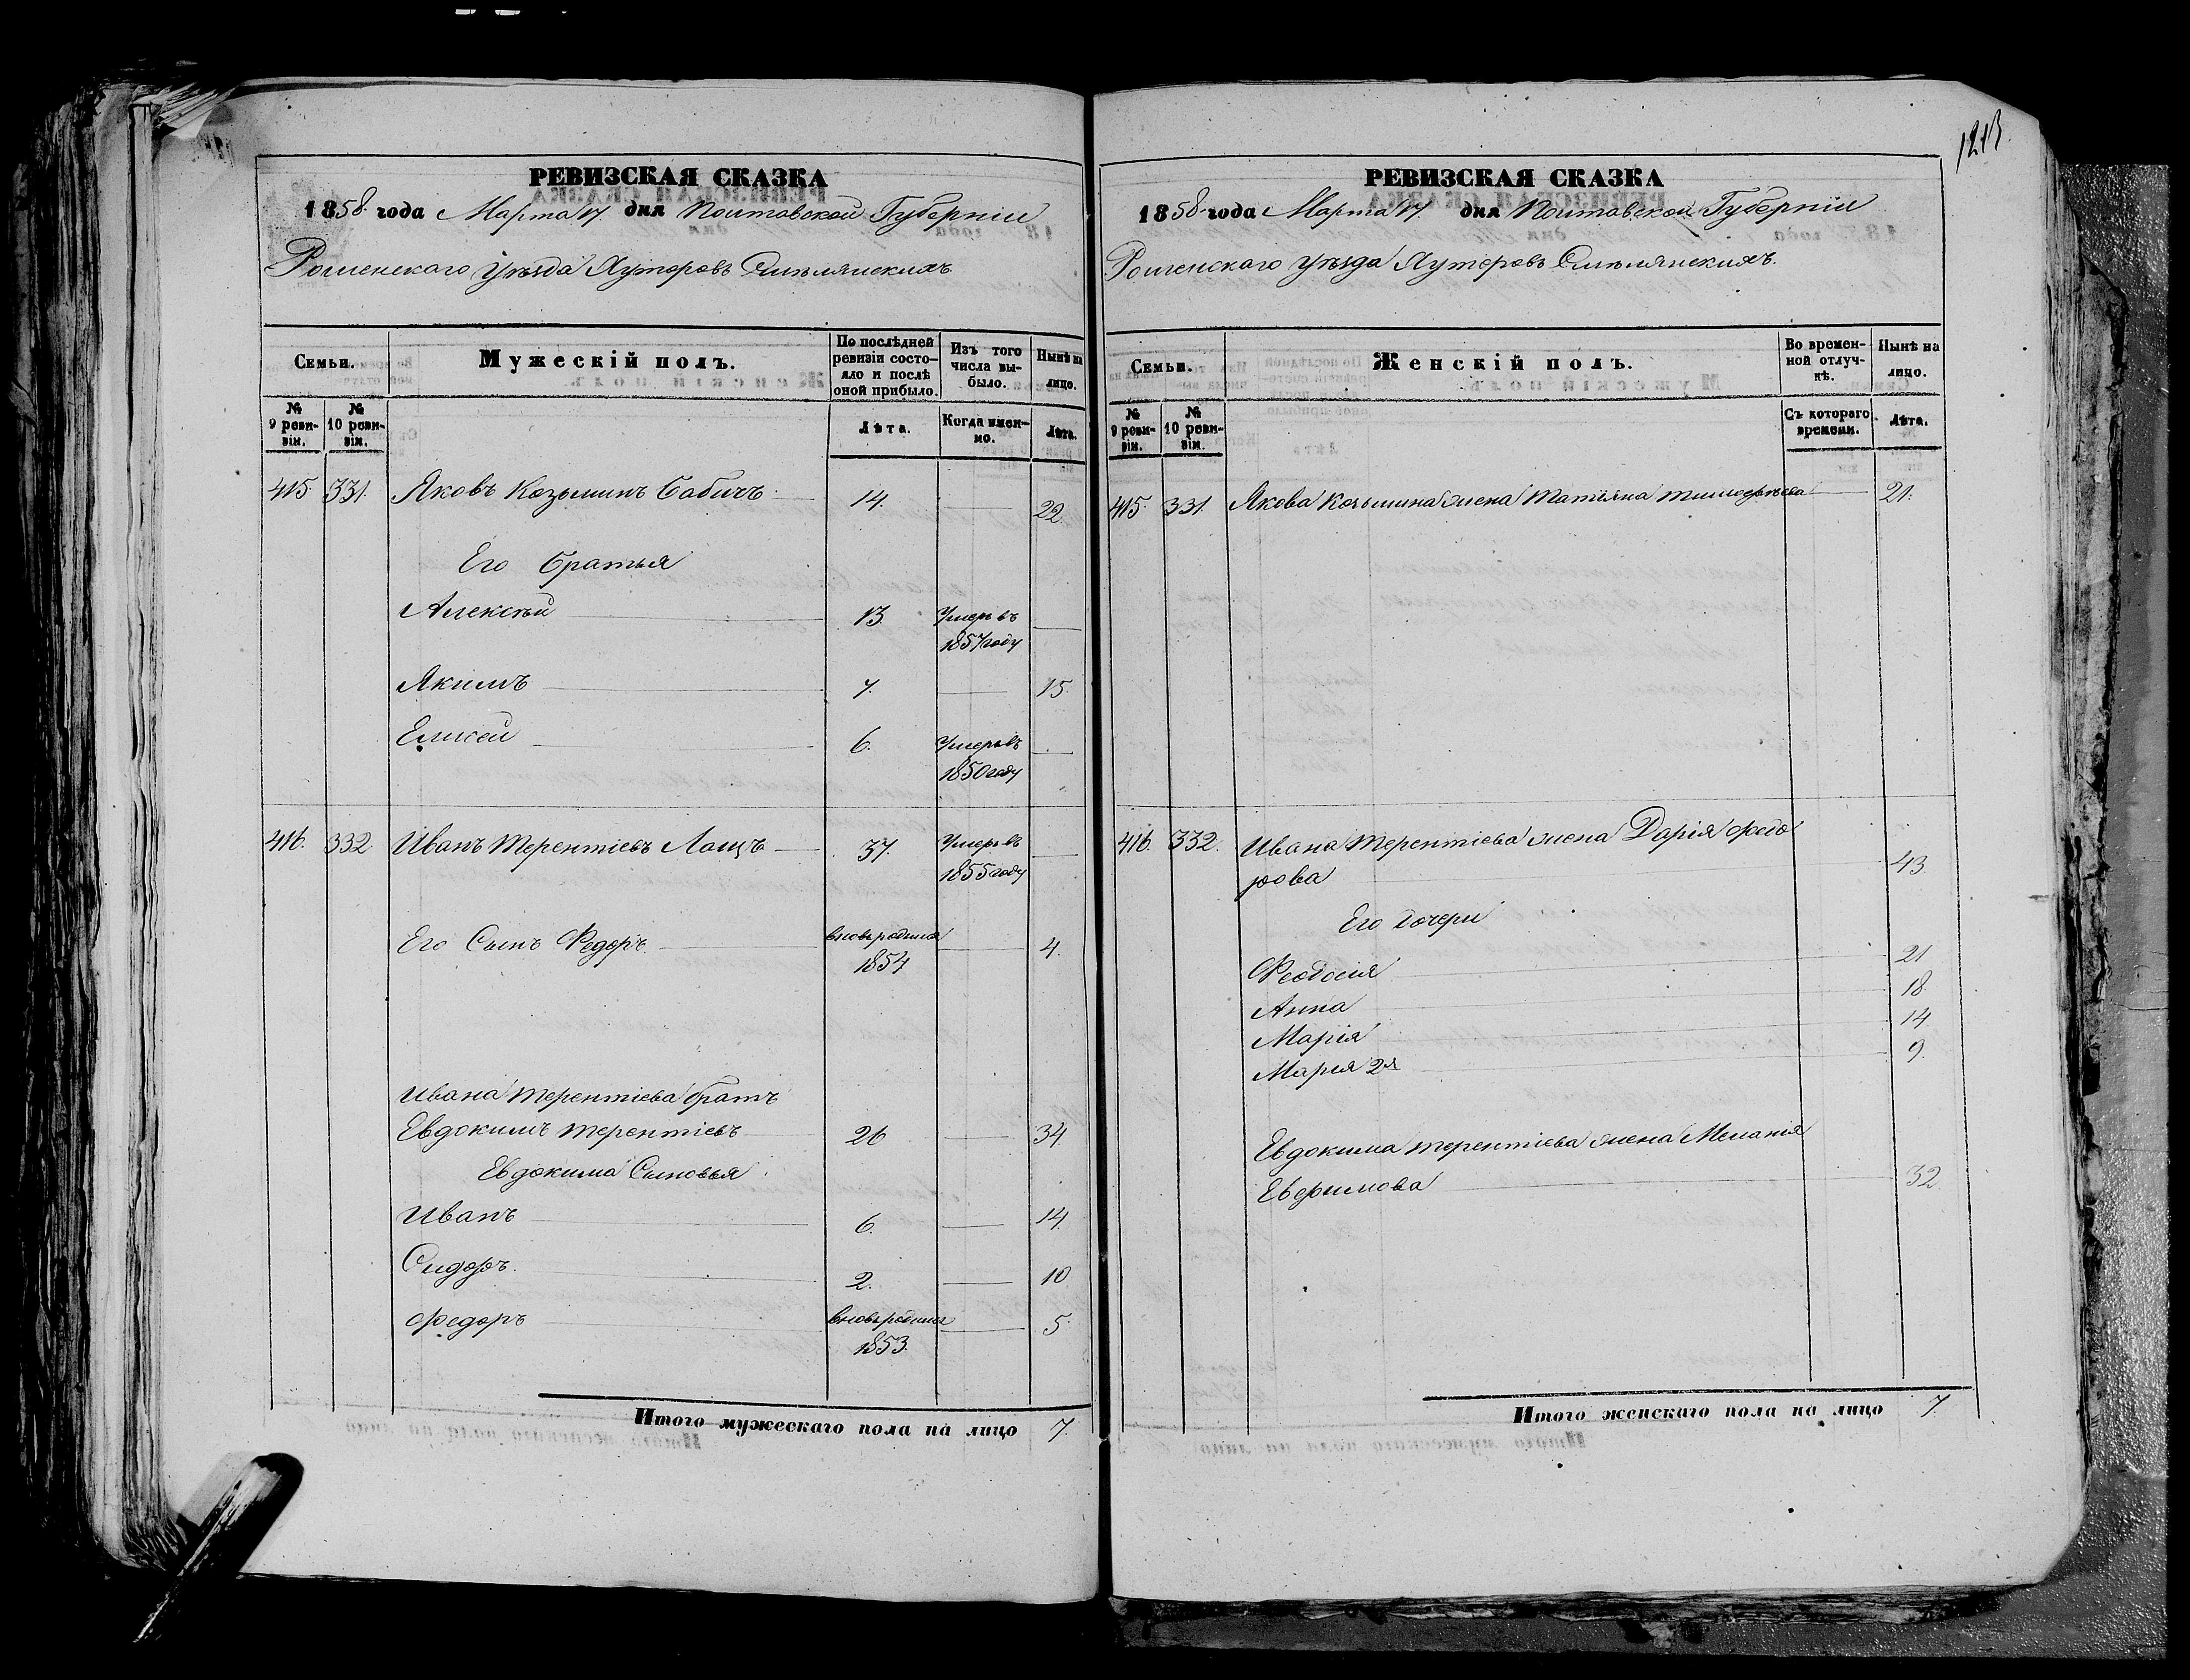 1213.
РЕВИЗСКАЯ СКАЗКА
1858 года Марта 17 дня Полтавской Губерніи
Роменскаго Уѣзда Хуторовъ Смѣлянскихъ
Семьи.
Мужескій полъ.
По послѣдней ревизіи состояло и послѣ оной прибыло.
Изъ того числа выбыло.
Нынѣ на лицо.
№ 9 ревизіи.
№ 10 ревизіи.
Лѣта.
Когда именно.
Лѣта.
415. 331. Яковъ Козьминъ Бабичъ 14. 22.
Его братья
Алексѣй 13. Умеръ въ 1857 году
Якимъ 7. 15.
Елисей 6. Умеръ въ 1850 году
416. 332. Иванъ Терентіевъ Лащъ 37. Умеръ въ 1855 году
Его Сынъ Федоръ вновь родился 1854 4.
Ивана Терентіева братъ
Евдокимъ Терентіевъ 26 34.
Евдокима Сыновья
Иванъ 6. 14.
Сидоръ 2. 10
Федоръ вновь родился 1853. 5.
Итого мужескаго пола на лицо 7.
РЕВИЗСКАЯ СКАЗКА
1858 года Марта 17 дня Полтавской Губерніи
Роменскаго Уѣзда Хуторовъ Смѣлянскихъ.
Семьи.
Женскій полъ.
Во временной отлучкѣ.
Нынѣ на лицо.
№ 9 ревизіи.
№ 10 ревизіи.
Съ котораго времени.
Лѣта.
415. 331. Якова Козьмина жена Татіяна Тимофѣева 21.
416. 332. Ивана Терентіева жена Дарія Федо
рова 43
Его дочери
Феодосія 21
Анна 18
Марія 14
Марія 2я 9.
Евдокима Терентіева жена Меланія
Евфимова 32
Итого женскаго пола на лицо 7.